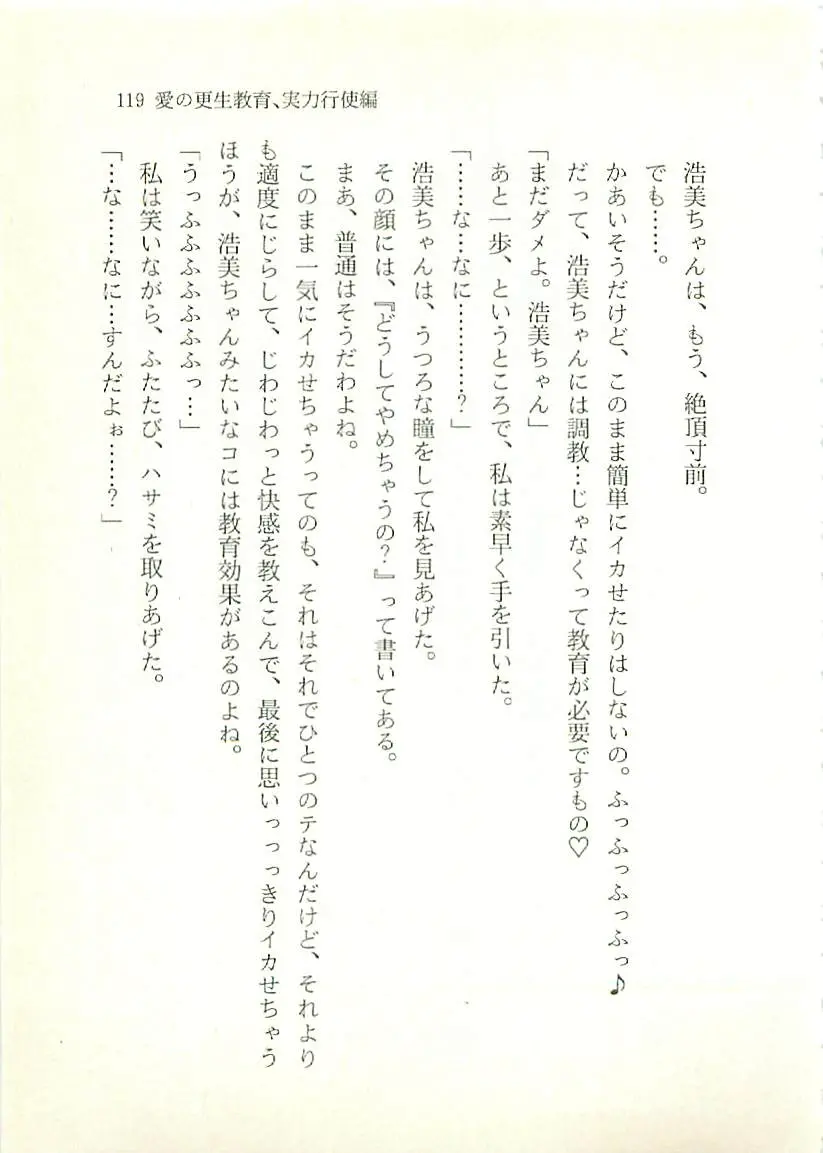 119 愛の更生教育、実力行使編
浩美ちゃんは、もう、絶頂寸前。
でも……。
かあいそうだけど、このまま簡単にイカせたりはしないの。ふっふっふっふっ♪
だって、浩美ちゃんには調教…じゃなくって教育が必要ですもの♡
「まだダメよ。浩美ちゃん」
あと一歩、というところで、私は素早く手を引いた。
「……な…なに…………?」
浩美ちゃんは、うつろな瞳をして私を見あげた。
その顔には、『どうしてやめちゃうの?』って書いてある。
まあ、普通はそうだわよね。
このまま一気にイカせちゃうってのも、それはそれでひとつのテなんだけど、それより
も適度にじらして、じわじわっと快感を教えこんで、最後に思いっっっきりイカせちゃう
ほうが、浩美ちゃんみたいなコには教育効果があるのよね。
「うっふふふふふふふっ…」
私は笑いながら、ふたたび、ハサミを取りあげた。
「…な……なに…すんだよぉ……?」